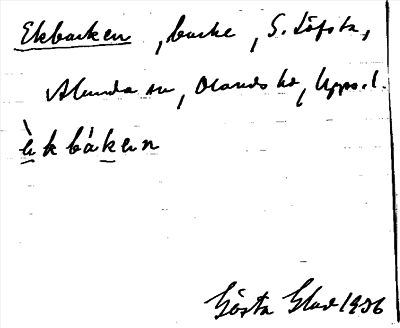 Ekbacken, backe, S. Löfsta,
Alunda sn, Olands hd, Upps. l.
è̱k bák̠en
Gösta Glad 1936